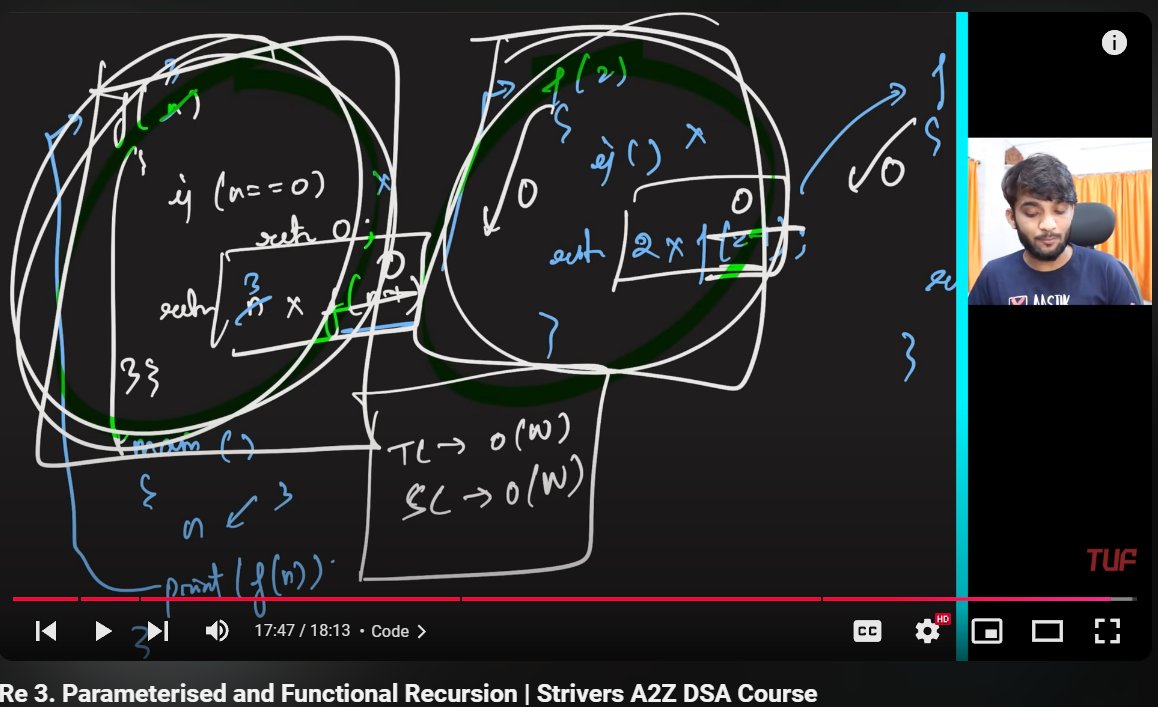 f(n)
{
if (n==0) x
return 0;
3
return n x f(n-1)
0
}
f(2)
{
0
if ( ) x
0
return 2 x f(2-1);
}
f
{
0
}
main ()
{
n ← 3
print(f(n))
}
TC → O(N)
SC → O(N)
AASTIK
TUF
17:47 / 18:13 • Code >
CC
HD
Re 3. Parameterised and Functional Recursion | Strivers A2Z DSA Course